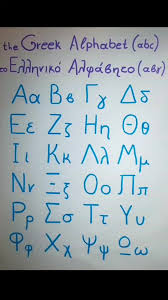 the Greek Alphabet (abc)
το Ελληνικό Αλφάβητο (αβγ)
Αα Ββ Γγ Δδ
Εε Ζζ Ηη Θθ
Ιι Κκ Λλ Μμ
Νν Ξξ Οο Ππ
Ρρ Σσ Ττ Υυ
Φφ Χχ Ψψ Ωω